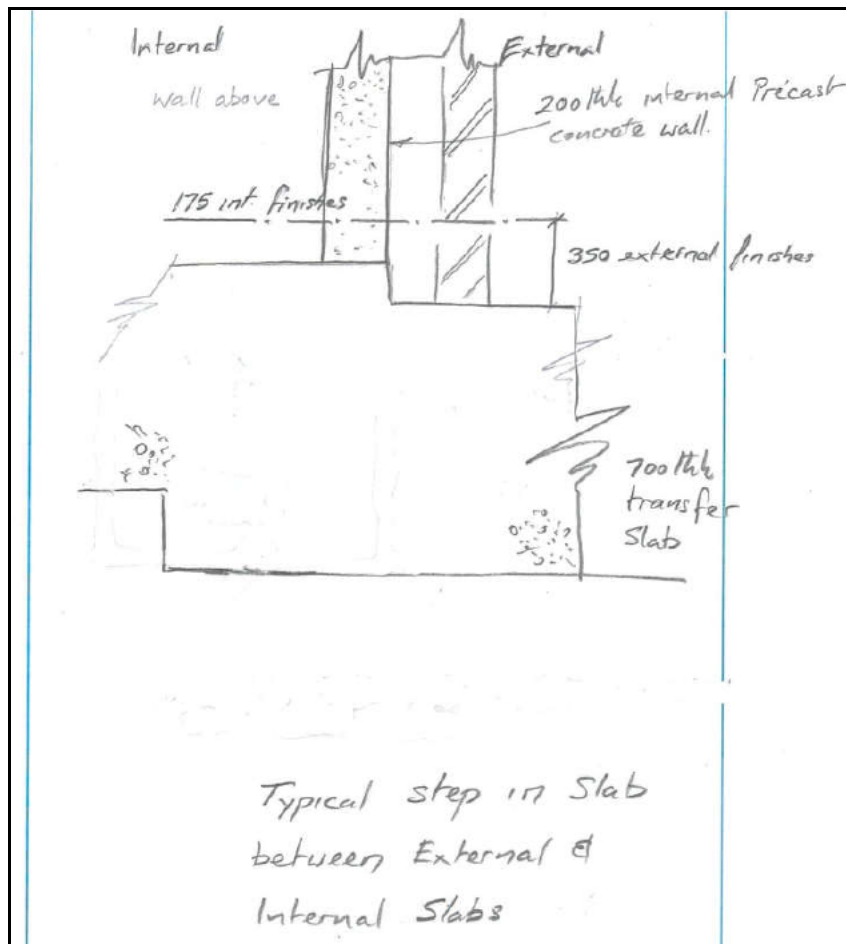 Internal
External
wall above
200thk internal Précast
concrete wall.
175 int. finishes
350 external finishes
700thk
transfer
Slab
Typical step in Slab
between External &
Internal Slabs